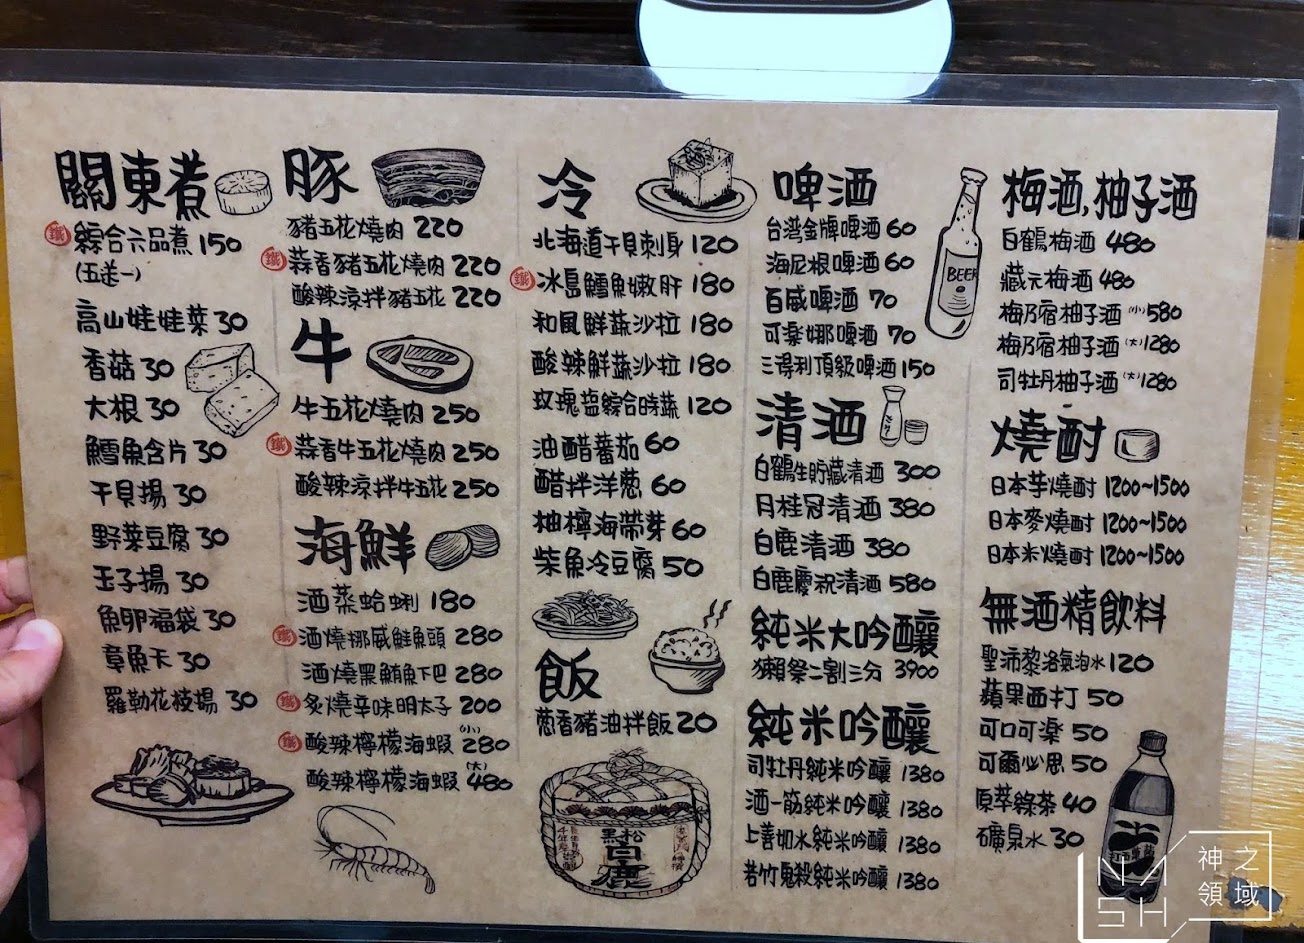 關東煮
鐵 綜合六品煮 150
(五送一)
高山娃娃菜 30
香菇 30
大根 30
鱈魚含片 30
干貝揚 30
野菜豆腐 30
玉子揚 30
魚卵福袋 30
章魚天 30
羅勒花枝揚 30
豚
豬五花燒肉 220
鐵 蒜香豬五花燒肉 220
酸辣涼拌豬五花 220
牛
牛五花燒肉 250
鐵 蒜香牛五花燒肉 250
酸辣涼拌牛五花 250
海鮮
酒蒸蛤蜊 180
鐵 酒燒挪威鮭魚頭 280
酒燒黑鮪魚下巴 280
鐵 炙燒辛味明太子 200
鐵 酸辣檸檬海蝦 (小) 280
酸辣檸檬海蝦 (大) 480
冷
北海道干貝刺身 120
鐵 冰島鱈魚嫩肝 180
和風鮮蔬沙拉 180
酸辣鮮蔬沙拉 180
玫瑰鹽綜合時蔬 120
油醋蕃茄 60
醋拌洋蔥 60
柚檸海帶芽 60
柴魚冷豆腐 50
飯
蔥香豬油拌飯 20
黑松
白鹿
啤酒
台灣金牌啤酒 60
海尼根啤酒 60
百威啤酒 70
可樂娜啤酒 70
三得利頂級啤酒 150
BEER
清酒
白鶴生貯藏清酒 300
月桂冠清酒 380
白鹿清酒 380
白鹿慶祝清酒 580
純米大吟釀
獺祭二割三分 3900
純米吟釀
司牡丹純米吟釀 1380
酒一筋純米吟釀 1380
上善如水純米吟釀 1380
若竹鬼殺純米吟釀 1380
梅酒,柚子酒
白鶴梅酒 480
藏元梅酒 480
梅乃宿柚子酒 (小) 580
梅乃宿柚子酒 (大) 1280
司牡丹柚子酒 (大) 1280
燒酎
日本芋燒酎 1200~1500
日本麥燒酎 1200~1500
日本米燒酎 1200~1500
無酒精飲料
聖沛黎洛氣泡水 120
蘋果西打 50
可口可樂 50
可爾必思 50
原萃綠茶 40
礦泉水 30
NASH
神之
領域